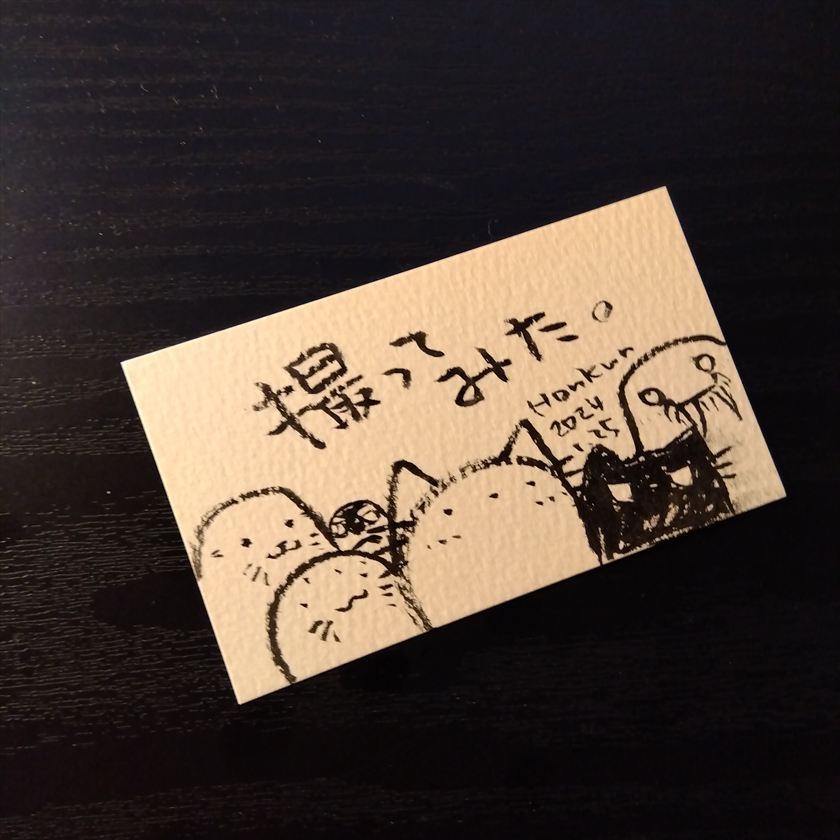 撮ってみた。
Honkun
2024
1.25